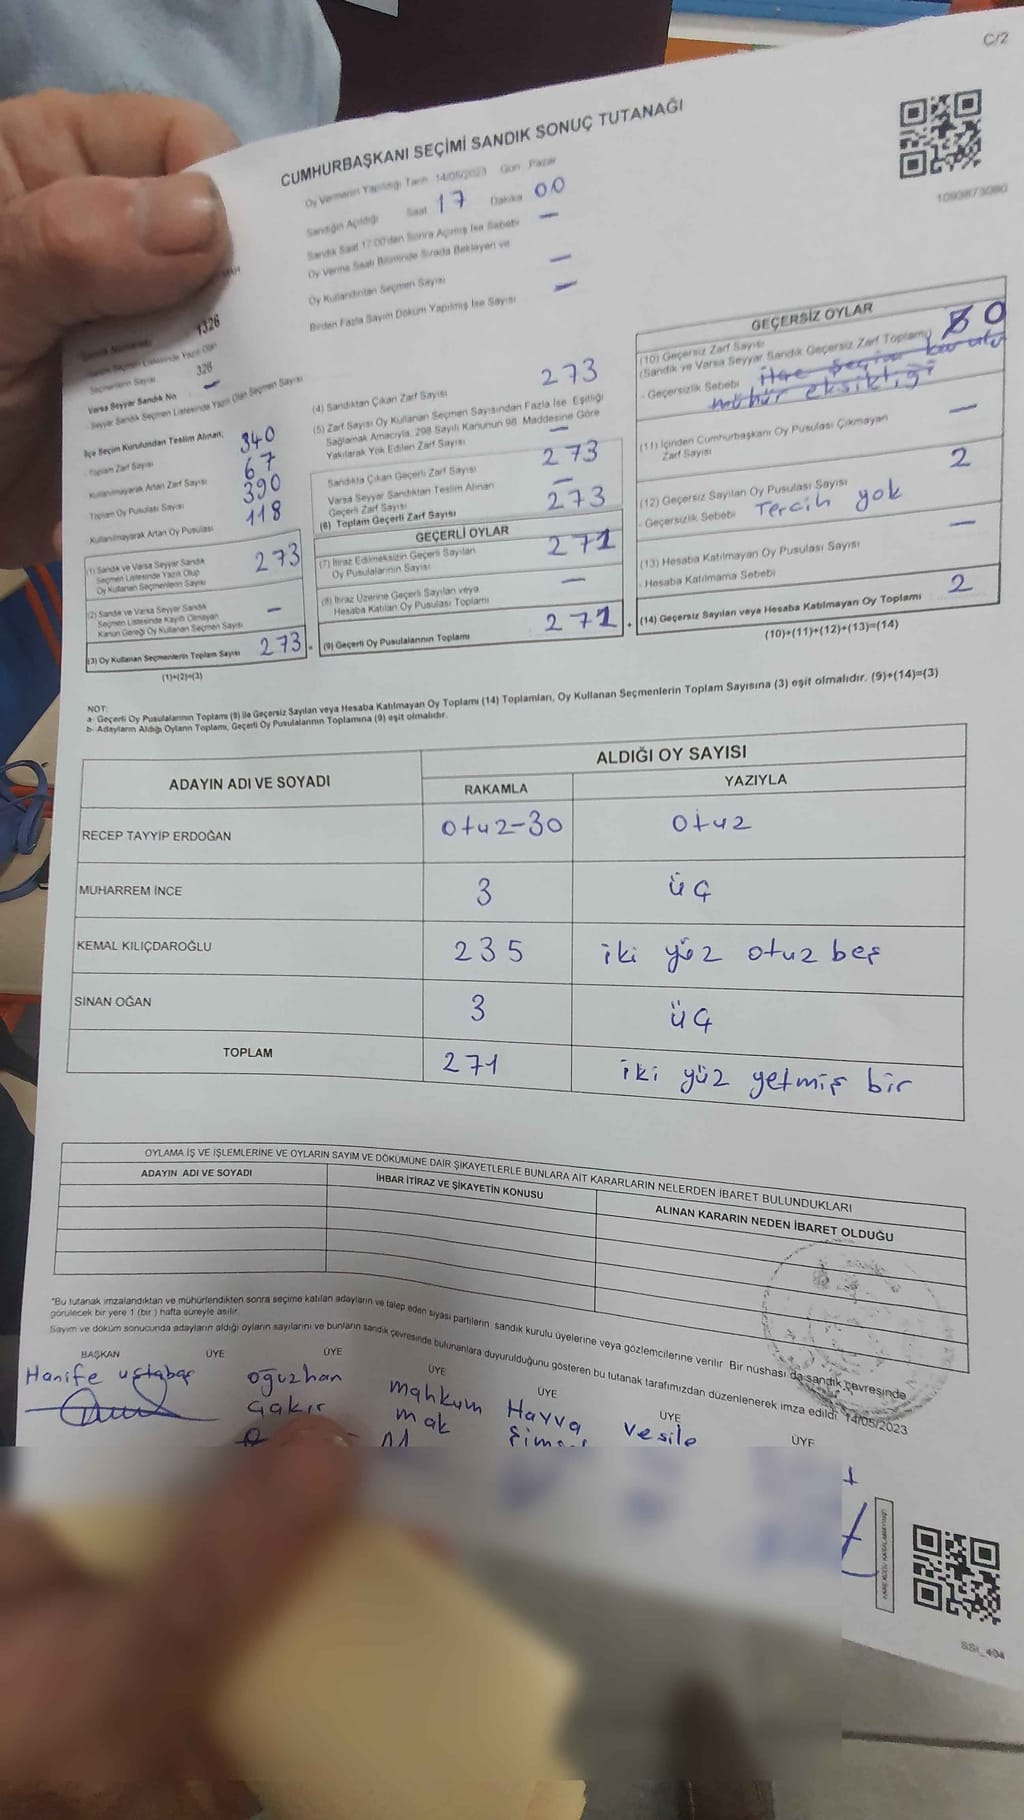 C/2
CUMHURBAŞKANI SEÇİMİ SANDIK SONUÇ TUTANAĞI
1093873080
Oy Vermenin Yapıldığı Tarih 14/05/2023 Gün Pazar
Sandığın Açıldığı Saat 17 Dakika 00
Sandık Saat 17:00'den Sonra Açılmış İse Sebebi —
Oy Verme Saati Bitiminde Sırada Bekleyen ve
Oy Kullandırılan Seçmen Sayısı —
Birden Fazla Sayım Döküm Yapılmış İse Sayısı —
Sandık Numarası 1326
Sandık Seçmen Listesinde Yazılı Olan
Seçmenlerin Sayısı 328
Varsa Seyyar Sandık No —
Seyyar Sandık Seçmen Listesinde Yazılı Olan Seçmen Sayısı
İlçe Seçim Kurulundan Teslim Alınan;
Toplam Zarf Sayısı 340
Kullanılmayarak Artan Zarf Sayısı 67
Toplam Oy Pusulası Sayısı 390
Kullanılmayarak Artan Oy Pusulası 118
(1) Sandık ve Varsa Seyyar Sandık
Seçmen Listesinde Yazılı Olup
Oy Kullanan Seçmenlerin Sayısı 273
(2) Sandık ve Varsa Seyyar Sandık
Seçmen Listesinde Kayıtlı Olmayan
Kanun Gereği Oy Kullanan Seçmen Sayısı —
(3) Oy Kullanan Seçmenlerin Toplam Sayısı 273 =
(1)+(2)=(3)
(4) Sandıktan Çıkan Zarf Sayısı 273
(5) Zarf Sayısı Oy Kullanan Seçmen Sayısından Fazla İse, Eşitliği
Sağlamak Amacıyla, 298 Sayılı Kanunun 98. Maddesine Göre
Yakılarak Yok Edilen Zarf Sayısı —
Sandıkta Çıkan Geçerli Zarf Sayısı 273
Varsa Seyyar Sandıktan Teslim Alınan
Geçerli Zarf Sayısı —
(6) Toplam Geçerli Zarf Sayısı 273
GEÇERLİ OYLAR
(7) İtiraz Edilmeksizin Geçerli Sayılan
Oy Pusulalarının Sayısı 271
(8) İtiraz Üzerine Geçerli Sayılan veya
Hesaba Katılan Oy Pusulası Toplamı —
(9) Geçerli Oy Pusulalarının Toplamı 271 +
GEÇERSİZ OYLAR
(10) Geçersiz Zarf Sayısı
(Sandık ve Varsa Seyyar Sandık Geçersiz Zarf Toplamı) 0
- Geçersizlik Sebebi ilçe seçim kurulu
mühür eksikliği
(11) İçinden Cumhurbaşkanı Oy Pusulası Çıkmayan
Zarf Sayısı —
(12) Geçersiz Sayılan Oy Pusulası Sayısı 2
- Geçersizlik Sebebi Tercih yok
(13) Hesaba Katılmayan Oy Pusulası Sayısı —
- Hesaba Katılmama Sebebi
(14) Geçersiz Sayılan veya Hesaba Katılmayan Oy Toplamı 2
(10)+(11)+(12)+(13)=(14)
NOT:
a- Geçerli Oy Pusulalarının Toplamı (9) ile Geçersiz Sayılan veya Hesaba Katılmayan Oy Toplamı (14) Toplamları, Oy Kullanan Seçmenlerin Toplam Sayısına (3) eşit olmalıdır. (9)+(14)=(3)
b- Adayların Aldığı Oyların Toplamı, Geçerli Oy Pusulalarının Toplamına (9) eşit olmalıdır.
ADAYIN ADI VE SOYADI ALDIĞI OY SAYISI
RAKAMLA YAZIYLA
RECEP TAYYİP ERDOĞAN otuz-30 otuz
MUHARREM İNCE 3 üç
KEMAL KILIÇDAROĞLU 235 iki yüz otuz beş
SİNAN OĞAN 3 üç
TOPLAM 271 iki yüz yetmiş bir
OYLAMA İŞ VE İŞLEMLERİNE VE OYLARIN SAYIM VE DÖKÜMÜNE DAİR ŞİKAYETLERLE BUNLARA AİT KARARLARIN NELERDEN İBARET BULUNDUKLARI
ADAYIN ADI VE SOYADI İHBAR İTİRAZ VE ŞİKAYETİN KONUSU ALINAN KARARIN NEDEN İBARET OLDUĞU
*Bu tutanak imzalandıktan ve mühürlendikten sonra seçime katılan adayların ve talep eden siyasi partilerin sandık kurulu üyelerine veya gözlemcilerine verilir. Bir nüshası da sandık çevresinde
görülecek bir yere 1 (bir) hafta süreyle asılır.
Sayım ve döküm sonucunda adayların aldığı oyların sayılarını ve bunların sandık çevresinde bulunanlara duyurulduğunu gösteren bu tutanak tarafımızdan düzenlenerek imza edildi. 14/05/2023
BAŞKAN ÜYE ÜYE ÜYE ÜYE ÜYE ÜYE
Hanife ustabaş
oğuzhan
çakır
Mahkum
mak
Havva
Vesile
SSİ_404